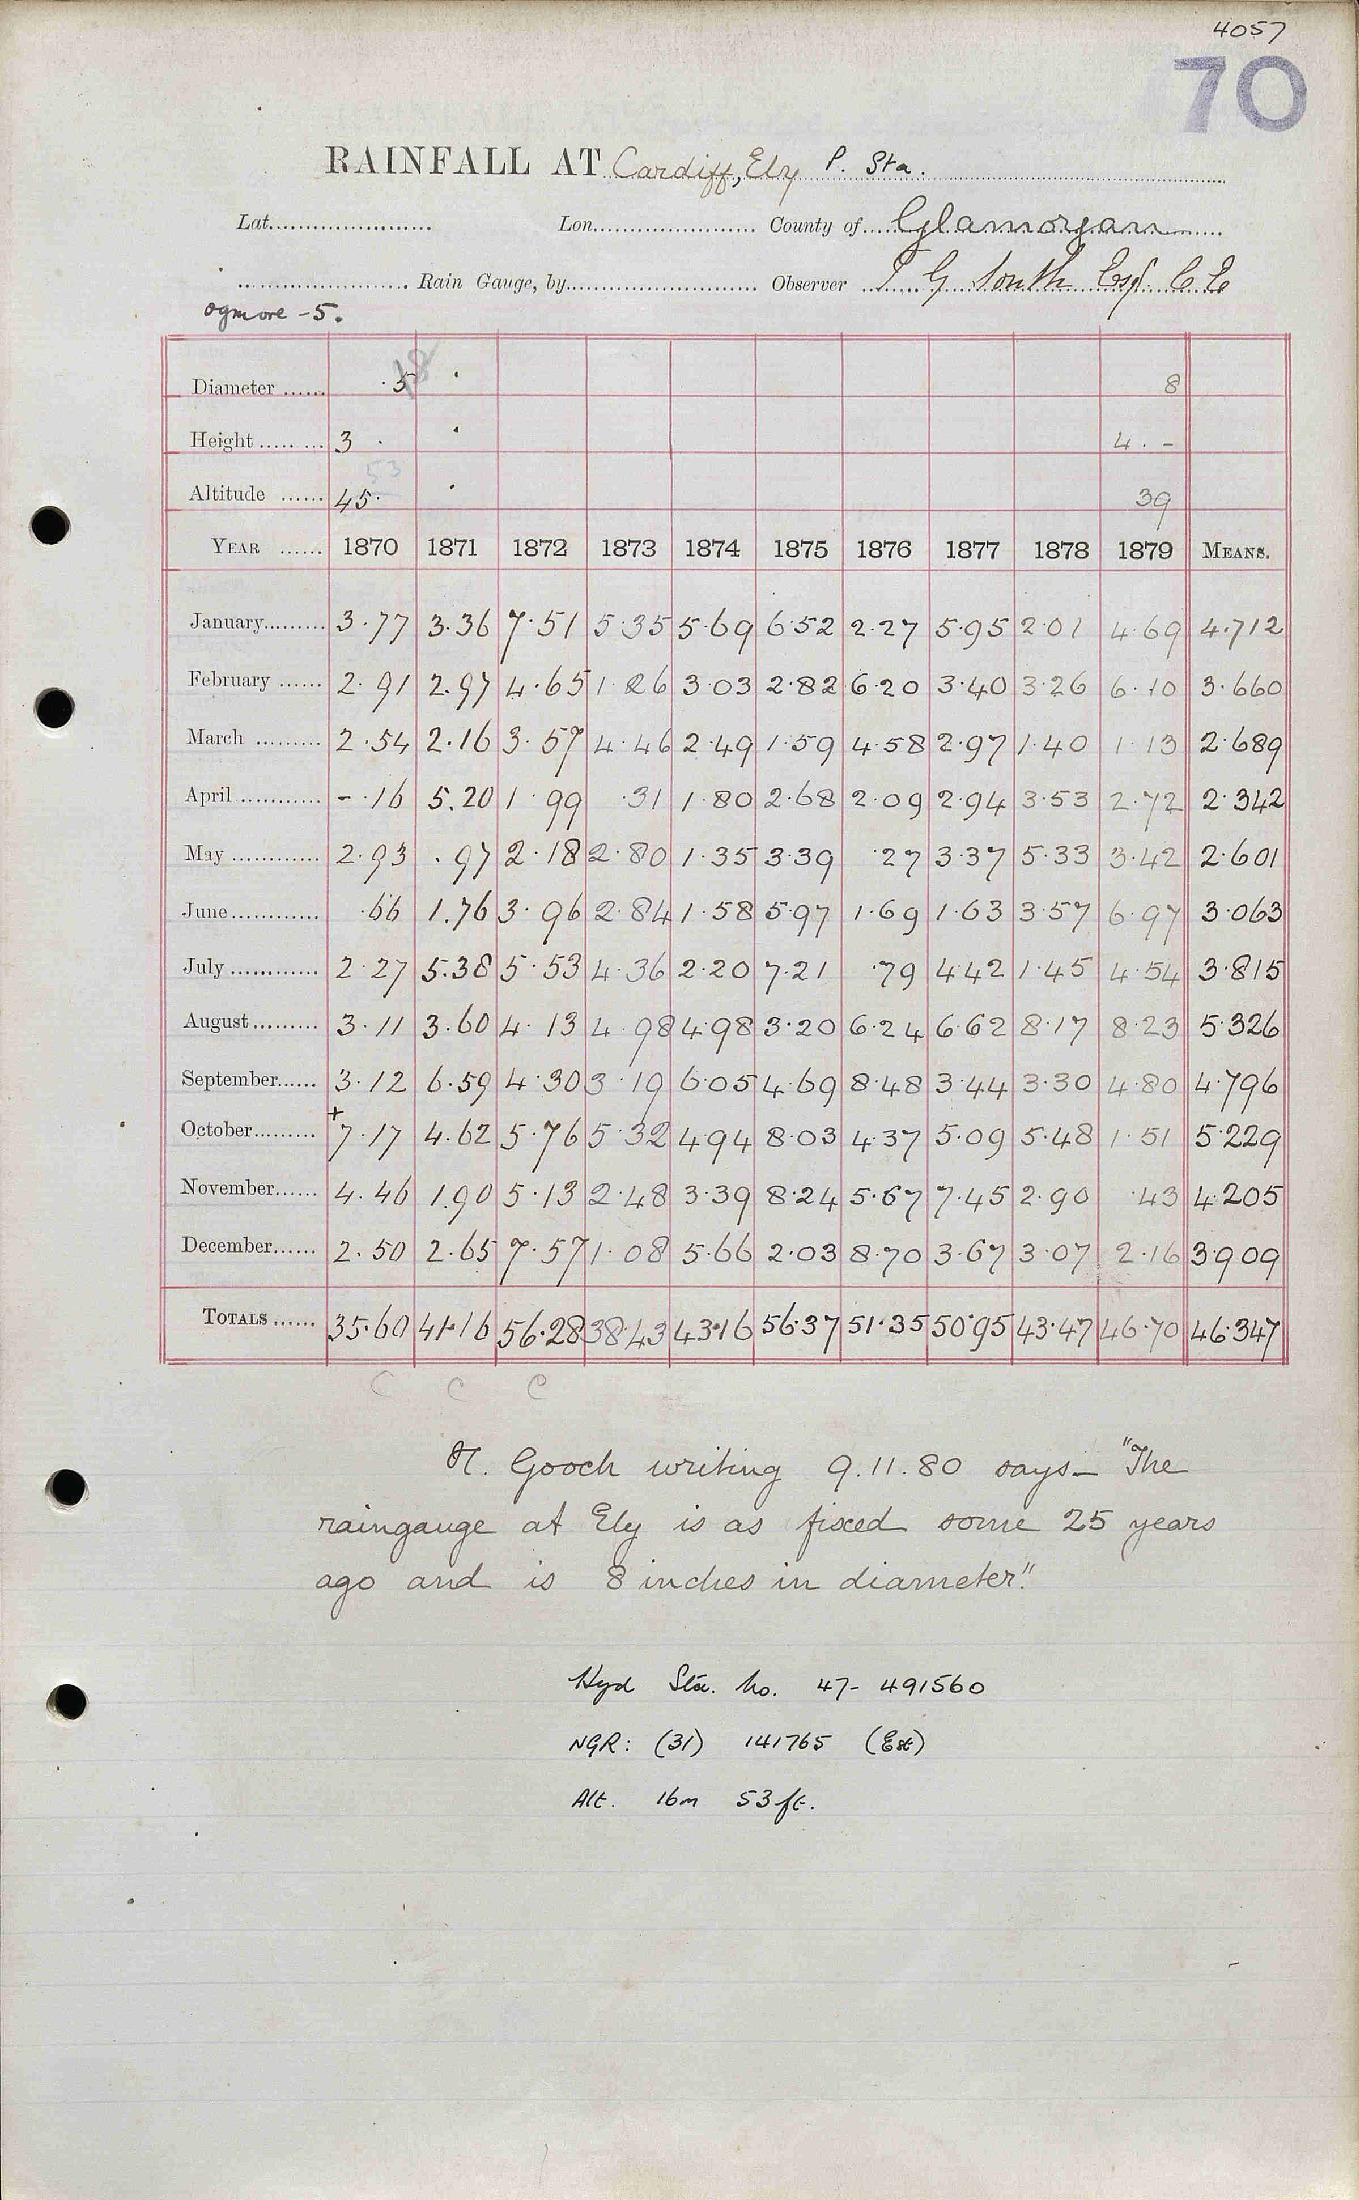 4057
70
RAINFALL AT Cardiff, Ely P. Sta.
Lat. Lon. County of Glamorgan
Rain Gauge, by Observer T G South Esq C E
Ogmore - 5.
Diameter ...... 5 18 8
Height ...... 3 4 . -
Altitude ...... 45 53 39
YEAR ...... 1870 1871 1872 1873 1874 1875 1876 1877 1878 1879 MEANS.
January 3.77 3.36 7.51 5.35 5.69 6.52 2.27 5.95 2.01 4.69 4.712
February 2.91 2.97 4.65 1.26 3.03 2.82 6.20 3.40 3.26 6.10 3.660
March 2.54 2.16 3.57 4.46 2.49 1.59 4.58 2.97 1.40 1.13 2.689
April -.16 5.20 1.99 .31 1.80 2.68 2.09 2.94 3.53 2.72 2.342
May 2.93 .97 2.18 2.80 1.35 3.39 .27 3.37 5.33 3.42 2.601
June .66 1.76 3.96 2.84 1.58 5.97 1.69 1.63 3.57 6.97 3.063
July 2.27 5.38 5.53 4.36 2.20 7.21 .79 4.42 1.45 4.54 3.815
August 3.11 3.60 4.13 4.98 4.98 3.20 6.24 6.62 8.17 8.23 5.326
September 3.12 6.59 4.30 3.19 6.05 4.69 8.48 3.44 3.30 4.80 4.796
October +7.17 4.62 5.76 5.32 4.94 8.03 4.37 5.09 5.48 1.51 5.229
November 4.46 1.90 5.13 2.48 3.39 8.24 5.67 7.45 2.90 .43 4.205
December 2.50 2.65 7.57 1.08 5.66 2.03 8.70 3.67 3.07 2.16 3.909
TOTALS 35.60 41.16 56.28 38.43 43.16 56.37 51.35 50.95 43.47 46.70 46.347
C C C
H. Gooch writing 9.11.80 says - "The
raingauge at Ely is as fixed some 25 years
ago and is 8 inches in diameter."
Hyd Sta. No. 47- 491560
NGR: (31) 141765 (Est)
Alt. 16m 53 ft.